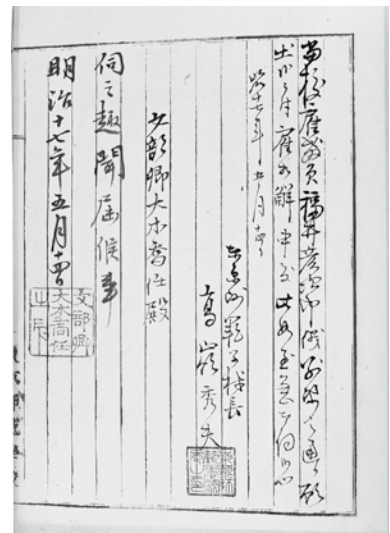 当校雇教員福井彦次郎儀別紙之通願
出候ニ付雇相解申度此段至急相伺候也
明治十七年五月十四日
東京師範学校長
高嶺秀夫
文部卿大木喬任殿
伺之趣聞届候事
明治十七年五月十四日
文部卿
大木喬任
之印